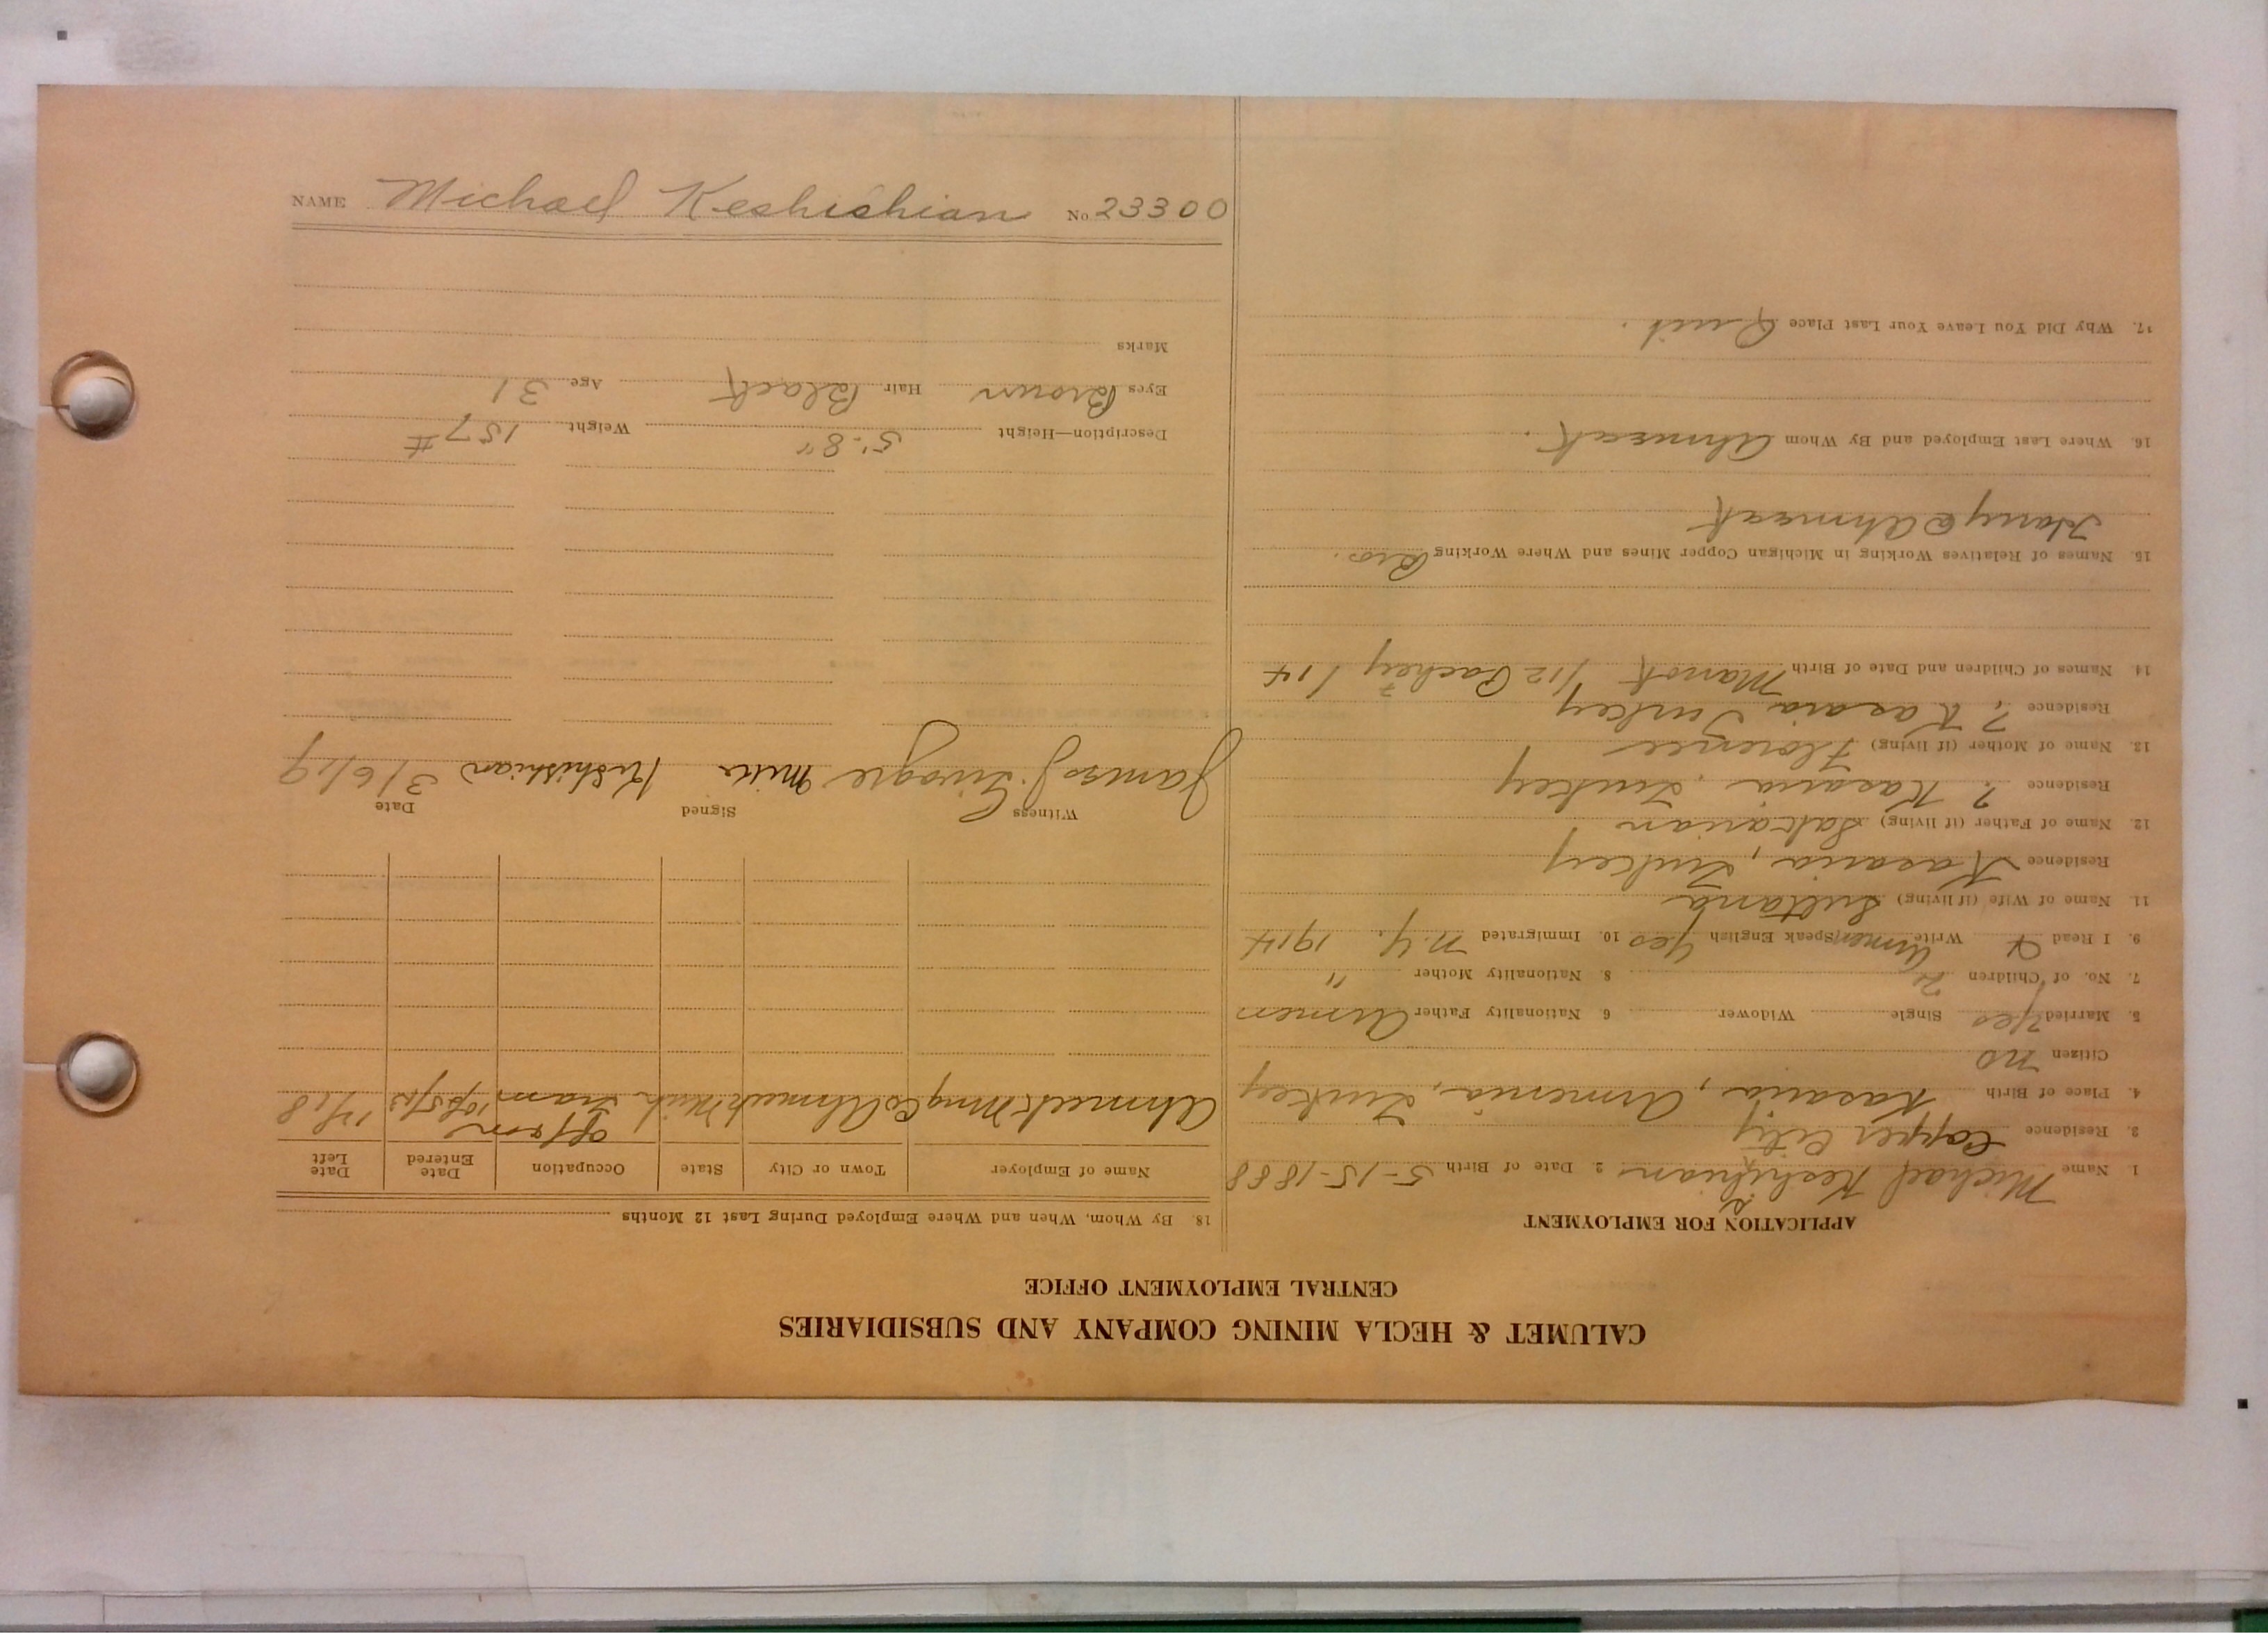 CALUMET & HECLA MINING COMPANY AND SUBSIDIARIES
CENTRAL EMPLOYMENT OFFICE
APPLICATION FOR EMPLOYMENT
1. Name Michael Keshishian 2. Date of Birth 5-15-1888
3. Residence Copper City
4. Place of Birth Kasaria, Armenia, Turkey
Citizen no
5. Married Yes Single Widower 6 Nationality Father Armen
7. No. of Children 2 8. Nationality Mother "
9. I Read & Write Armen Speak English Yes 10. Immigrated N.Y. 1914
11. Name of Wife (if living) Sultana
Residence Kasaria, Turkey
12. Name of Father (if living)
Residence ? Kasaria, Turkey
13. Name of Mother (if living) Florence
Residence ? Kasaria Turkey
14. Names of Children and Date of Birth /12 /14
15. Names of Relatives Working in Michigan Copper Mines and Where Working Bro.
Harry @ Ahmeek
16. Where Last Employed and By Whom Ahmeek.
17. Why Did You Leave Your Last Place Quit.
18. By Whom, When and Where Employed During Last 12 Months
Name of Employer Town or City State Occupation Date Entered Date Left
off & on
Ahmeek Mng Co Ahmeek Mich Tram
Witness Signed Date
James J. Keshishian 3/6/19
Description—Height 5'-8" Weight 157#
Eyes Brown Hair Black Age 31
Marks
NAME Michael Keshishian No 23300